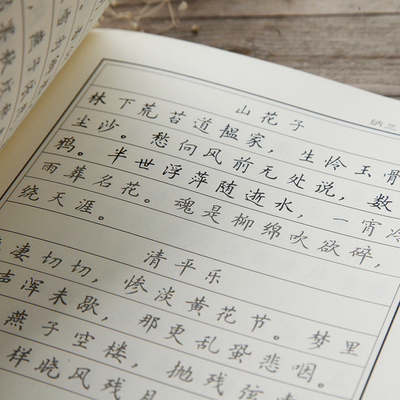 纳兰
山花子
林下荒苔道韫家，生怜玉骨
尘沙。愁向风前无处说，数
鸦。半世浮萍随逝水，一宵冷
雨葬名花。魂是柳绵吹欲碎，
绕天涯。
清平乐
凄凄切切，惨淡黄花节。梦里
声浑未歇，那更乱蛩悲咽。
燕子空楼，抛残弦
样晓风残月